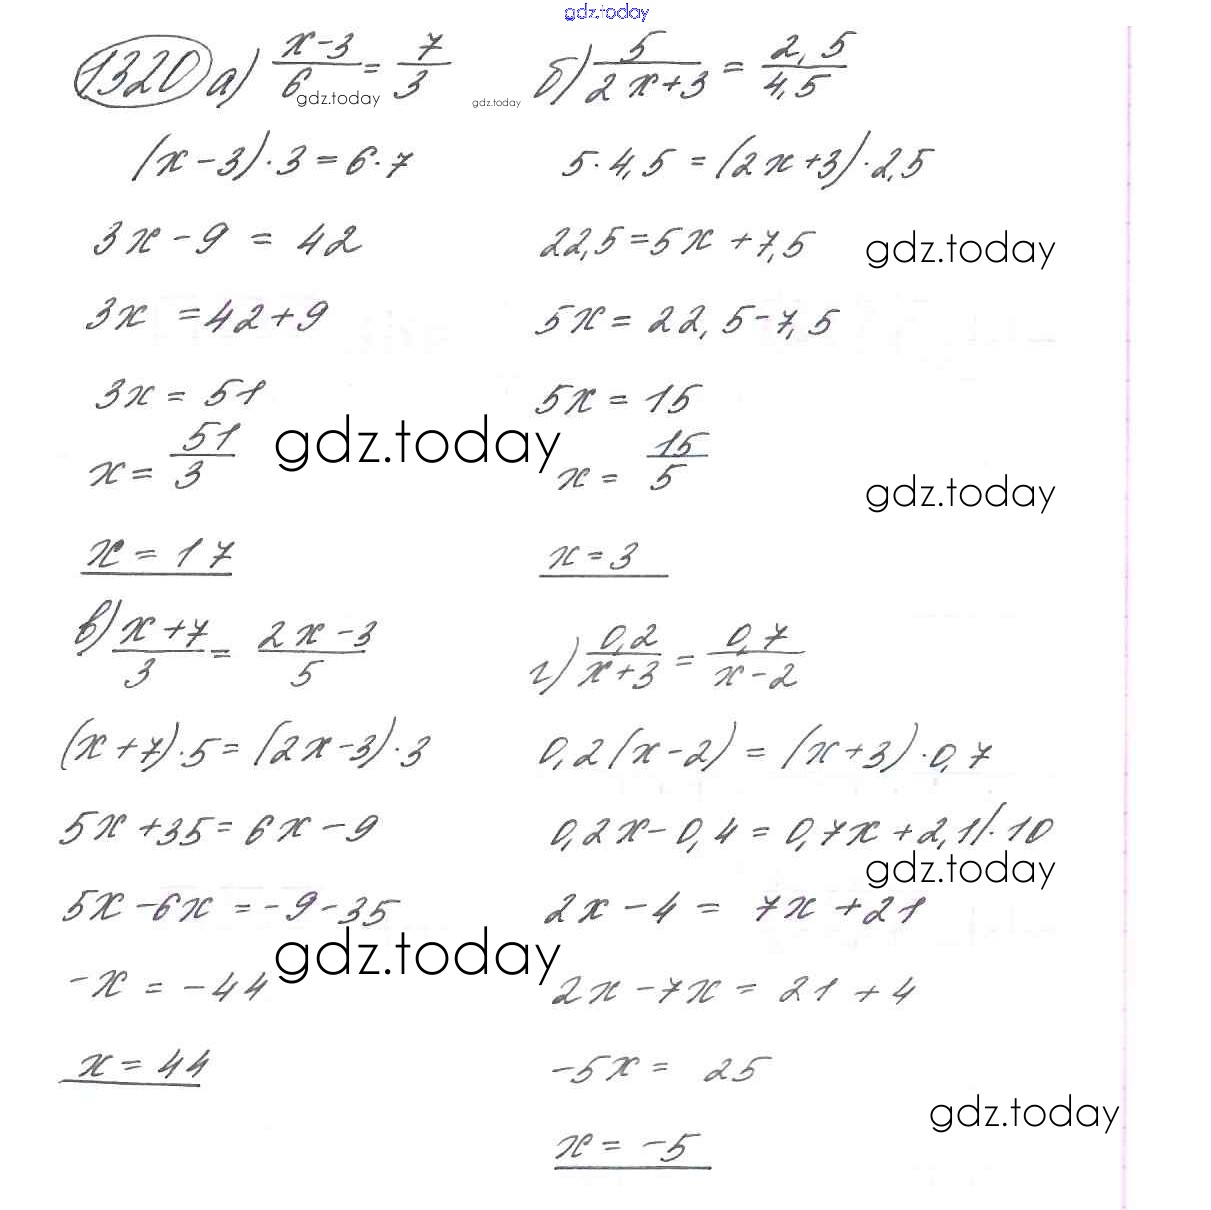 gdz.today
1320 а) (x-3)/6 = 7/3
gdz.today
gdz.today
(x-3)·3=6·7
3x-9 = 42
3x =42+9
3x = 51
x= 51/3
x = 17
б) 5/(2x+3) = 2,5/4,5
5·4,5 =(2x+3)·2,5
22,5=5x+7,5
gdz.today
5x=22,5-7,5
5x = 15
gdz.today
x= 15/5
gdz.today
x=3
в) (x+7)/3 = (2x-3)/5
(x+7)·5=(2x-3)·3
5x+35=6x-9
5x-6x=-9-35
gdz.today
-x = -44
x=44
г) 0,2/(x+3) = 0,7/(x-2)
0,2(x-2) = (x+3)·0,7
0,2x-0,4=0,7x+2,1/·10
gdz.today
2x-4= 7x+21
2x-7x= 21+4
-5x= 25
gdz.today
x= -5